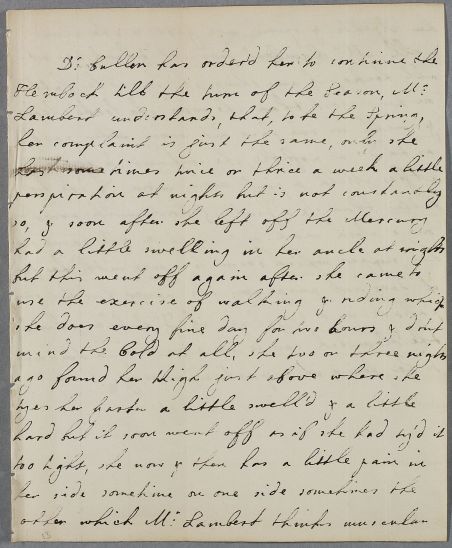 Dr: Cullen has order'd her to continue the
Hemlock till the turn of the Season, Mr:
Lambert understands, that, to be the Spring,
her complaint is just the same, only she
has sometimes twice or thrice a week a little
perspiration at nights but is not constandly
so, & soon after she left off the Mercury
had a little swelling in her ancle at nights
but this went off again after she came to
use the exercise of walking & riding which
she does every fine day for two hours & don't
mind the Cold at all, she two or three nights
ago found her thigh just above where she
tyes her garter a little swell'd & a little
hard but it soon went off as if she had ty'd it
too tight, she now & then has a little pain in
her side sometime on one side sometimes the
other which Mr: Lambert thinks muscular